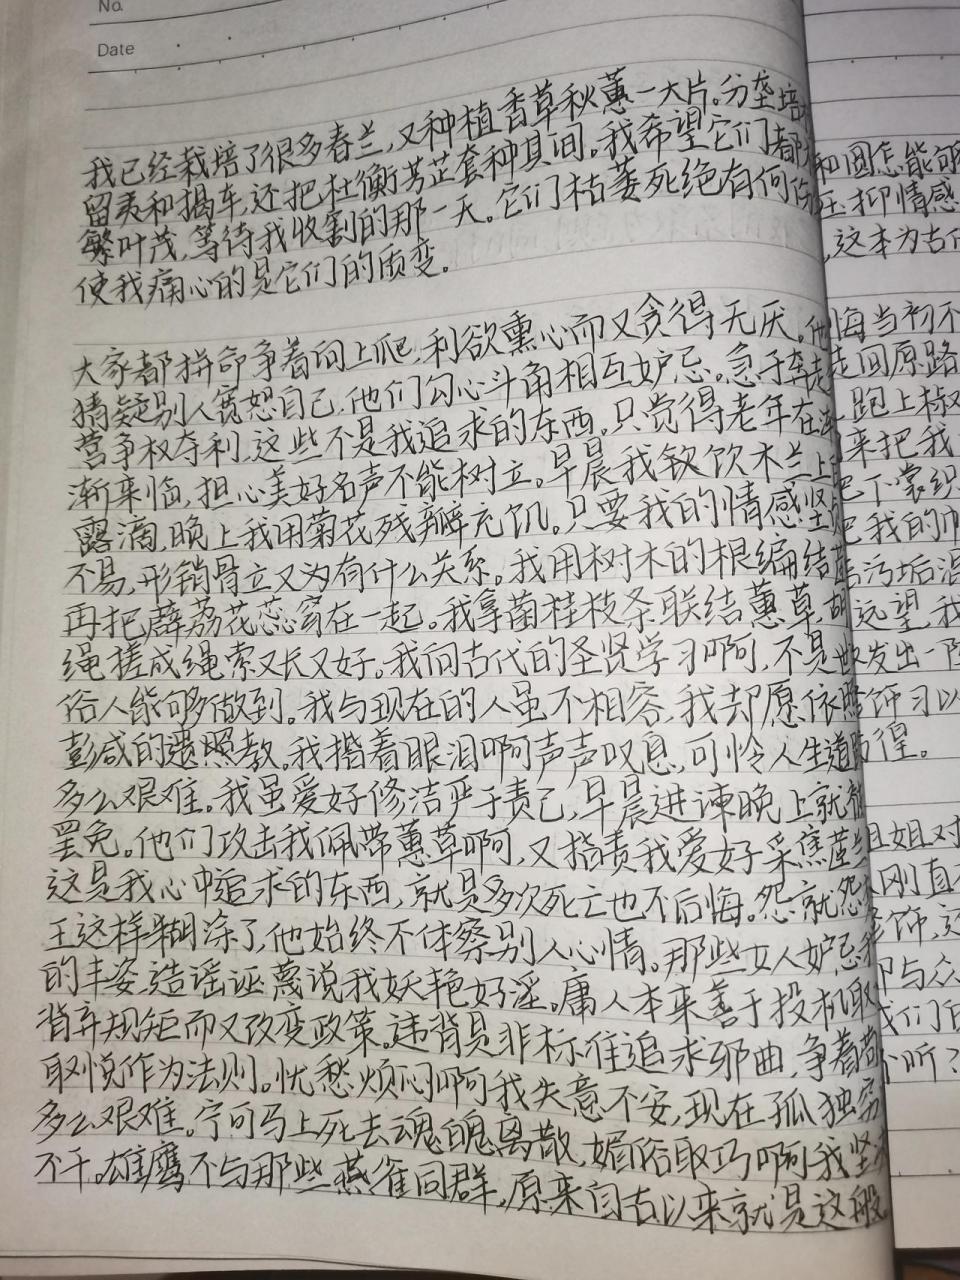 No.
Date
我已经栽培了很多春兰,又种植香草秋蕙一大片。分垄培
留夷和揭车,还把杜衡芳芷套种其间。我希望它们都
繁叶茂,等待我收割的那一天。它们枯萎死绝有何伤
使我痛心的是它们的质变。
大家都拼命争着向上爬,利欲熏心而又贪得无厌。他
猜疑别人宽恕自己,他们勾心斗角相互妒忌。急于奔走
营争权夺利,这些不是我追求的东西。只觉得老年在渐
渐来临,担心美好名声不能树立。早晨我饮饮木兰上
露滴,晚上我用菊花残瓣充饥。只要我的情感坚
不易,形销骨立又为有什么关系。我用树木的根编结
再把薜荔花蕊穿在一起。我拿菌桂枝条联结蕙草,胡
绳搓成绳索又长又好。我向古代的圣贤学习啊,不是世
俗人能够做到。我与现在的人虽不相容,我却愿依
彭咸的遗照教。我揩着眼泪啊声声叹息,可怜人生道
多么艰难。我虽爱好修洁严于责己,早晨进谏晚上就
罢免。他们攻击我佩带蕙草啊,又指责我爱好采蕉茝兰
这是我心中追求的东西,就是多次死亡也不后悔。怨就怨
王这样糊涂了,他始终不体察别人心情。那些女人妒忌我
的丰姿,造谣诬蔑说我妖艳好淫。庸人本来善于投机取
背弃规矩而又改变政策。违背是非标准追求邪曲,争着苟
取悦作为法则。忧愁烦闷啊我失意不安,现在孤独穷
多么艰难。宁可马上死去魂魄离散,媚俗取巧啊我坚
不干。雄鹰不与那些燕雀同群,原来自古以来就是这般
和圆怎能够
压抑情感
,这本为古
悔当初不
走回原路
跑上椒
来把我
把下裳织
把我的巾
污垢混
远望,我
发出一阵
饰习以
彷徨。
姐姐对
刚直
饰,这
与众
我们自
听?